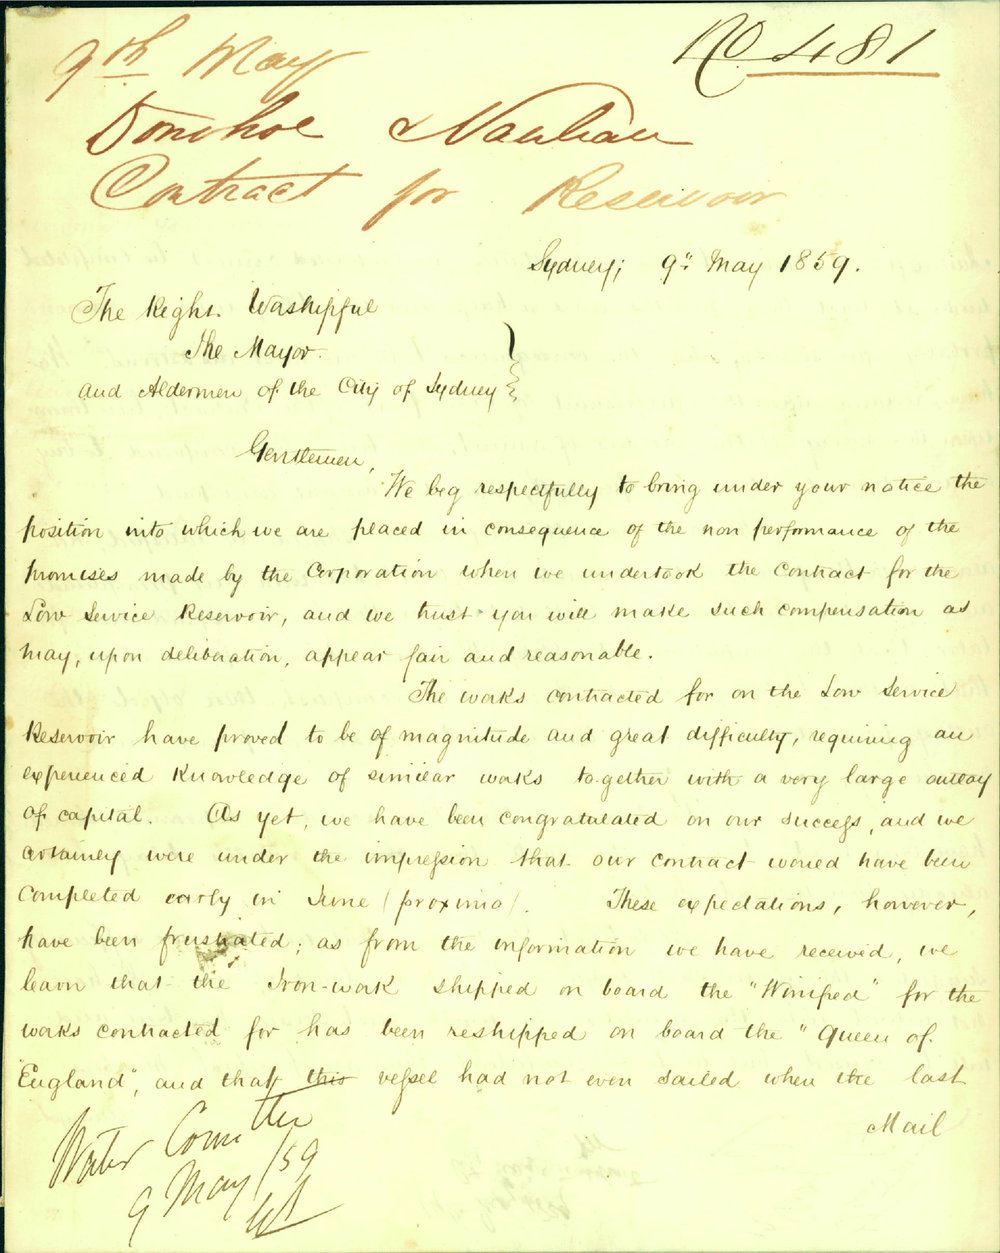 No 481
9th May
Donohoe & Vaughan
Contract for Reservoir
Sydney; 9th May 1859.
The Right Washipful
The Mayor
and Aldermen of the City of Sydney
Gentlemen,
We beg respectfully to bring under your notice the
position into which we are placed in consequence of the non performance of the
promises made by the Corporation when we undertook the contract for the
Low Service Reservoir, and we trust you will make such compensation as
may, upon deliberation, appear fair and reasonable.
The works contracted for on the Low Service
Reservoir have proved to be of magnitude and great difficulty, requiring an
experienced knowledge of similar works together with a very large outlay
of capital. As yet, we have been congratulated on our success, and we
certainly were under the impression that our contract would have been
completed early in June (proximo). These expectations, however,
have been frustrated; as from the information we have received, we
learn that the Iron-work shipped on board the "Winifred" for the
works contracted for has been reshipped on board the "Queen of
England", and that this vessel had not even sailed when the last
Mail
Water Comittee
9 May /59